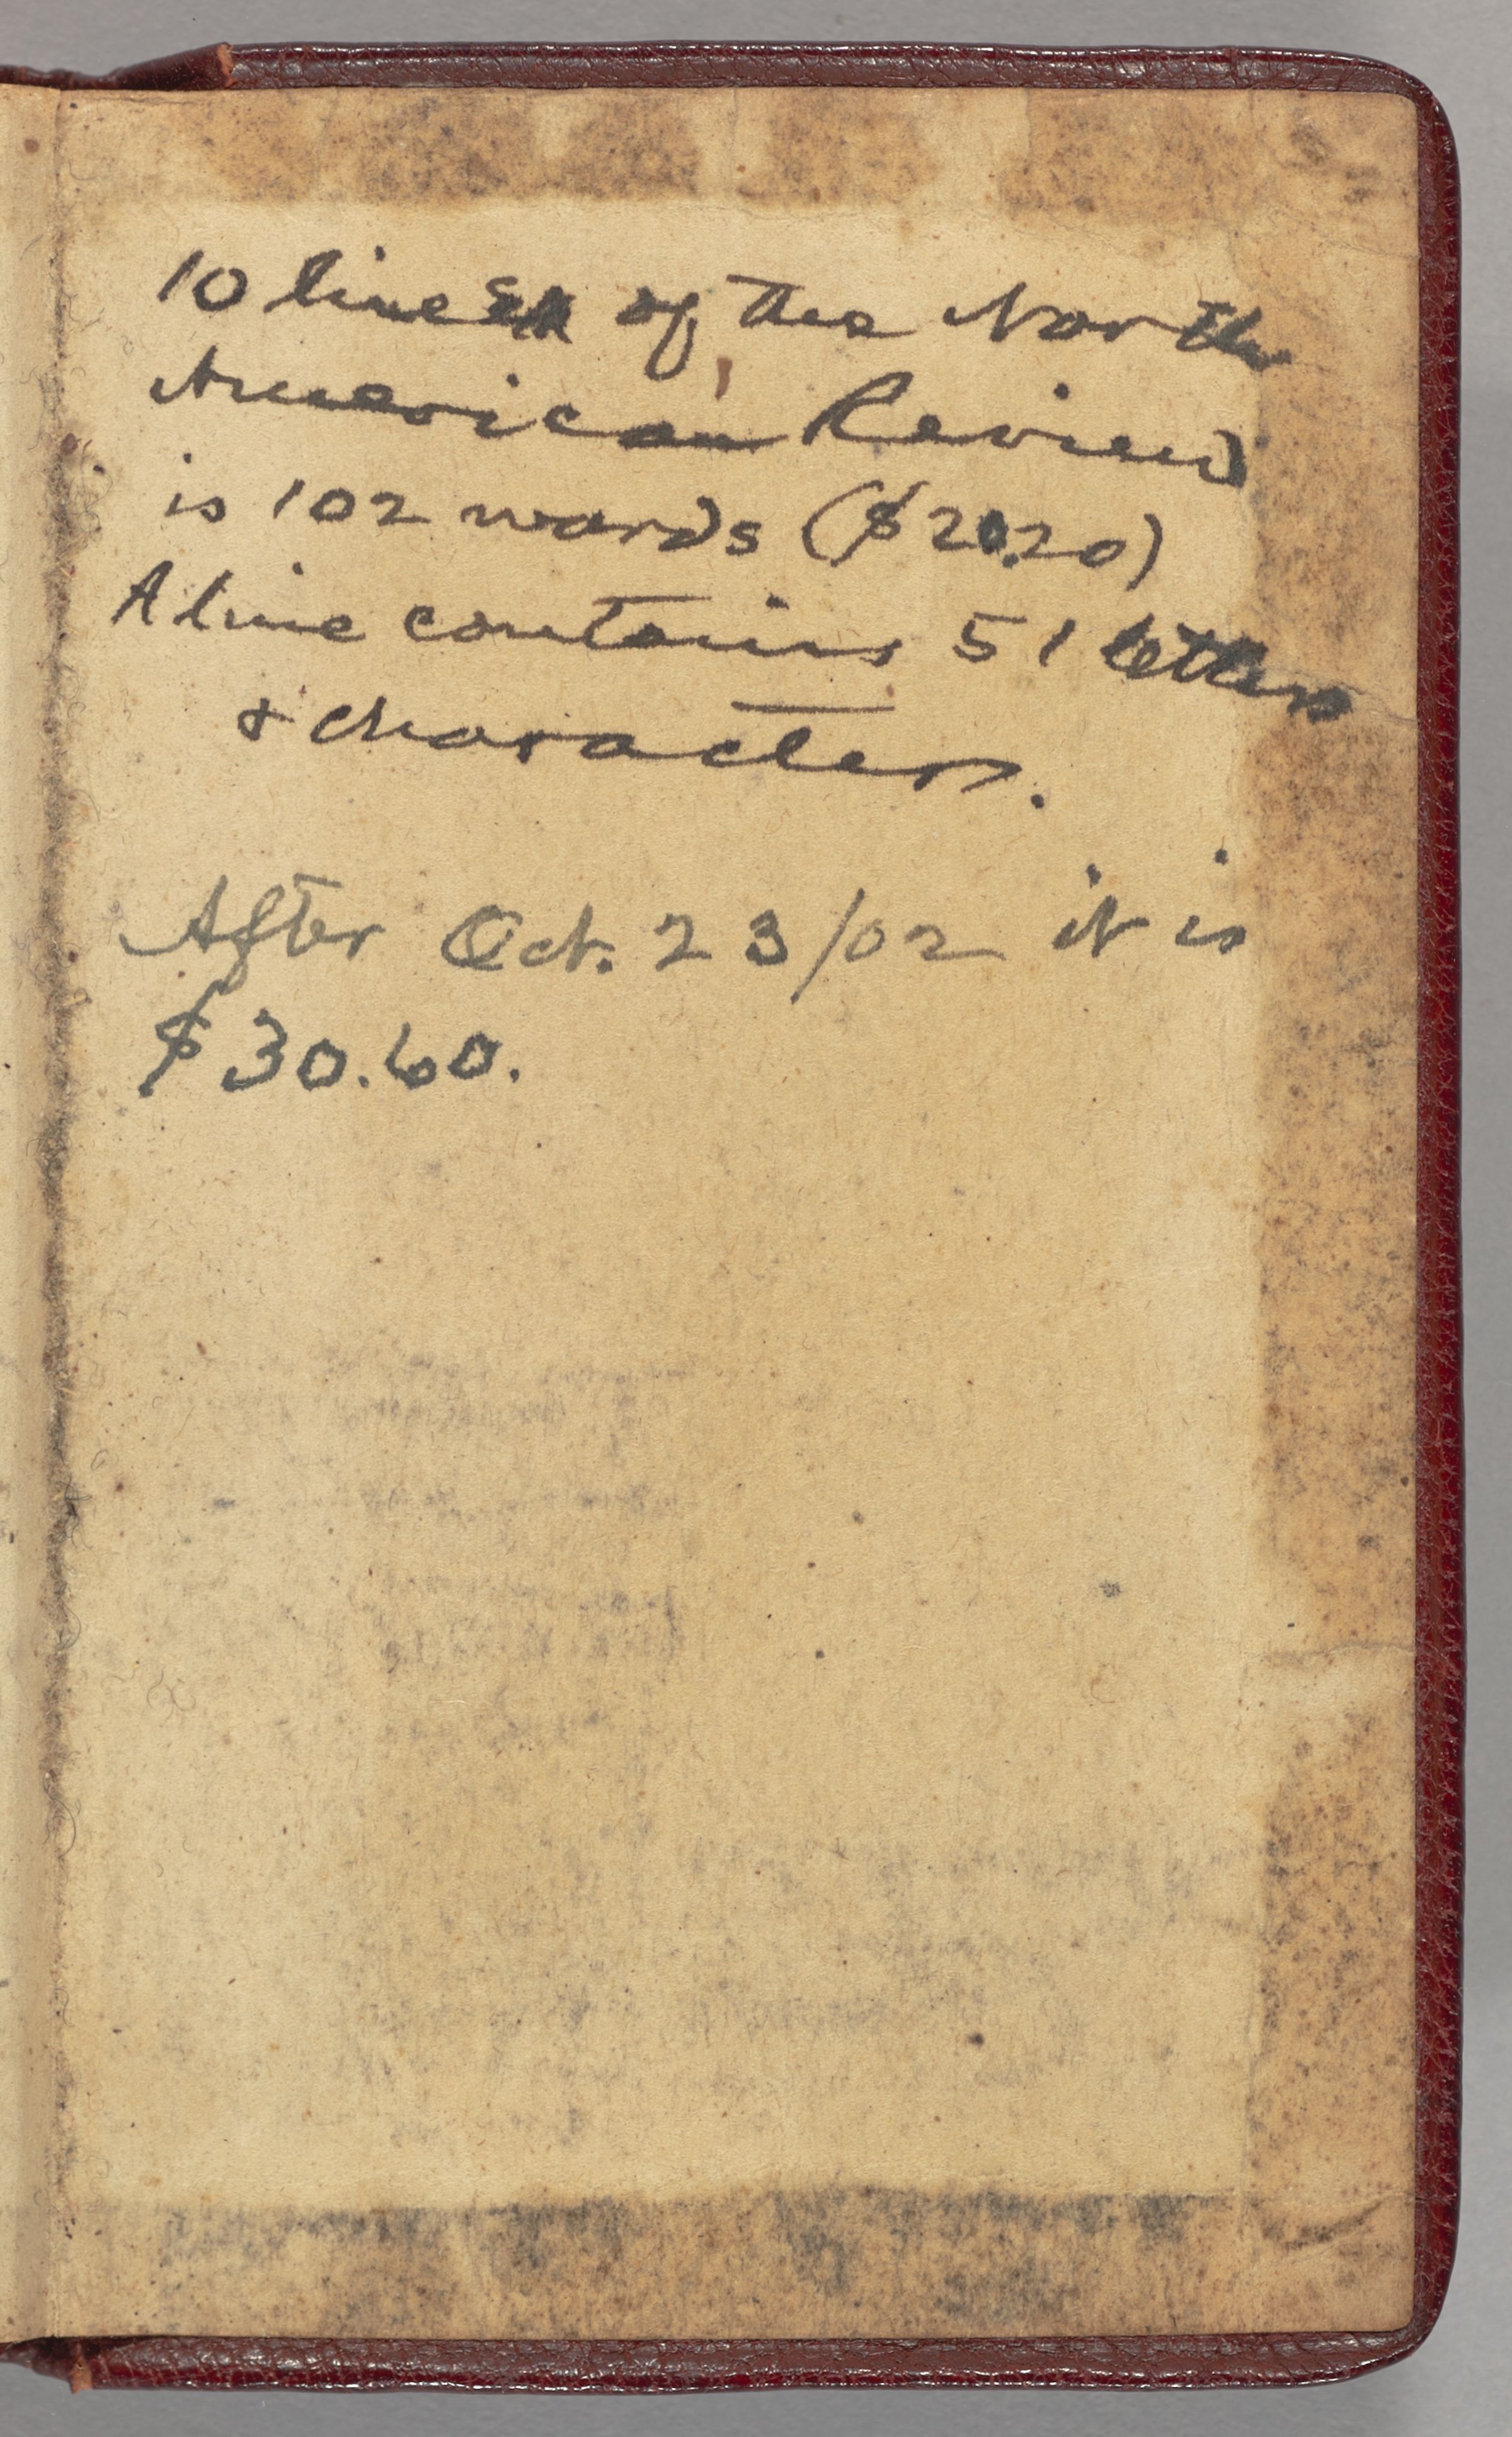 10 lines of the North
American Review
is 102 words ($20.20)
A line contains 51 letters
& characters.
After Oct. 23/02 it is
$30.60.